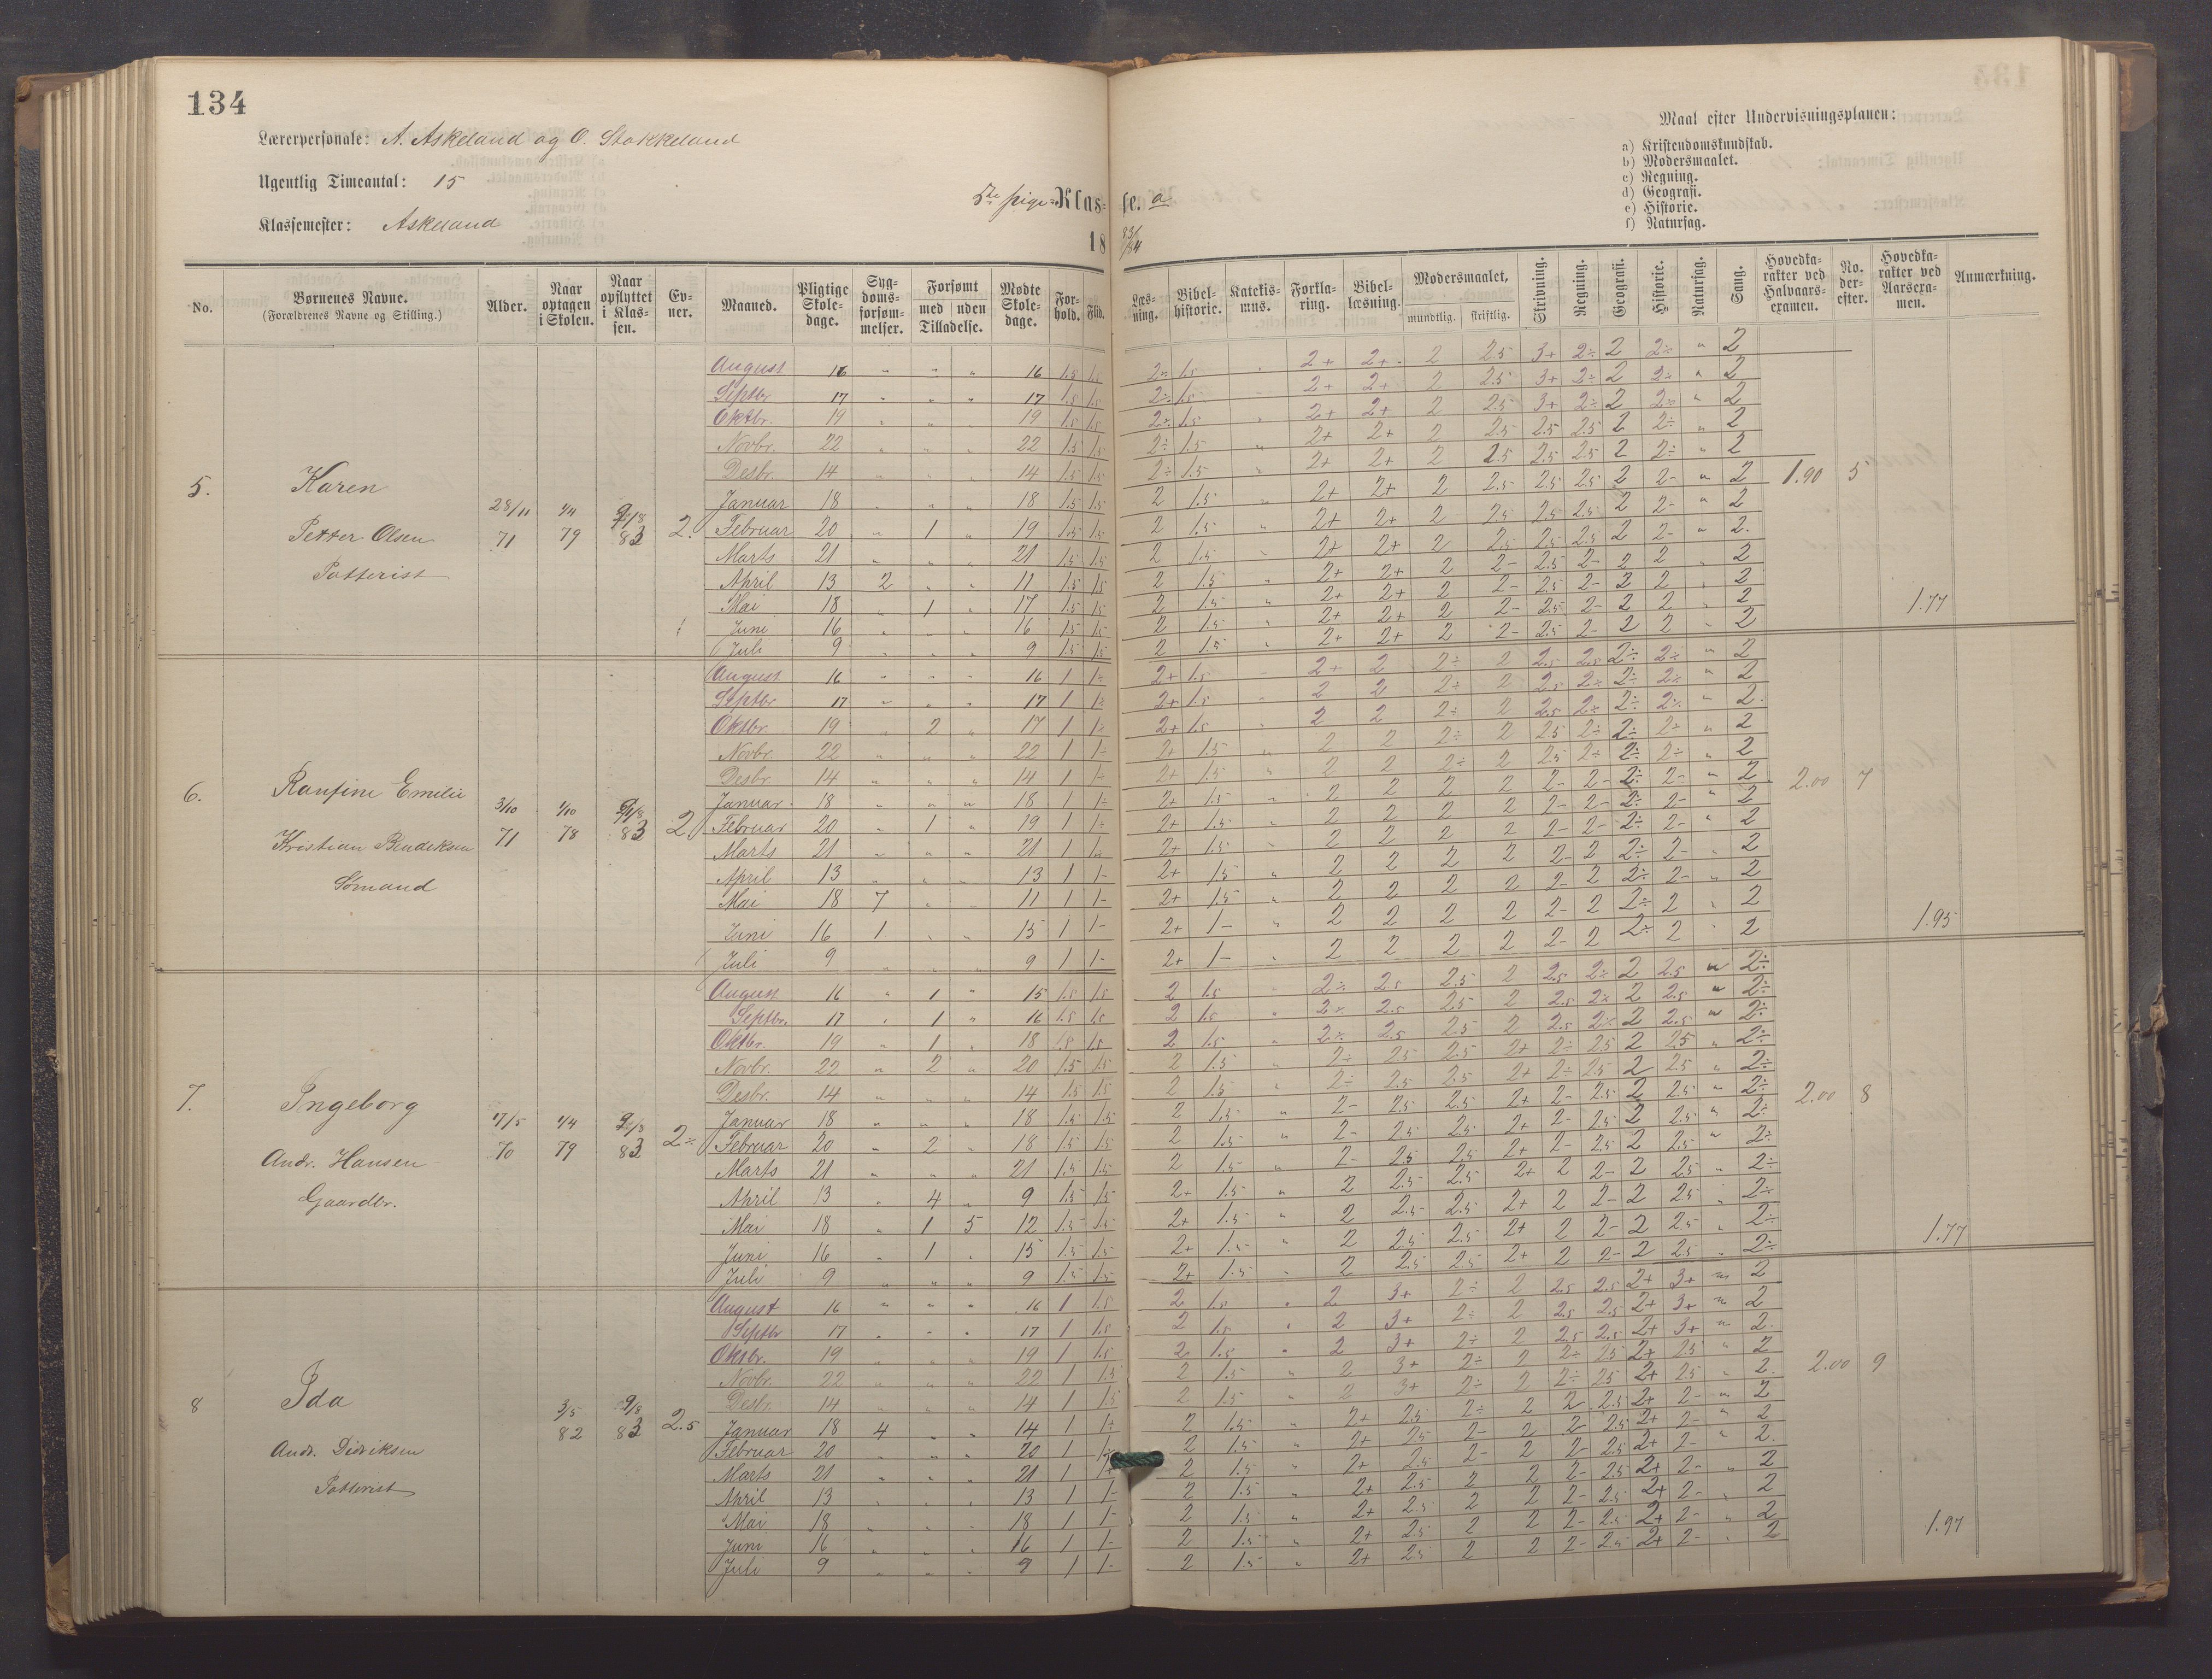 134
Lærerpersonale: A. Askeland og O. Stokkeland
Ugentlig Timeantal: 15
Klassemester: Askeland
5te pige-Klas- se. a
18 83/84
Maal efter Undervisningsplanen:
a) Kristendomskundskab.
b) Modersmaalet.
c) Regning.
d) Geografi.
e) Historie.
f) Naturfag.
No. Børnenes Navne. (Forældrenes Navne og Stilling.) Alder. Naar optagen i Skolen. Naar opflyttet i Klassen. Evner. Maaned. Pligtige Skoledage. Sygdomsforsømmelser. Forsømt med uden Tilladelse. Mødte Skoledage. Forhold. Flid. Læsning. Bibelhistorie. Katekismus. Forklaring. Bibellæsning. Modersmaalet, mundtlig. skriftlig. Skrivning. Regning. Geografi. Historie. Naturfag. Sang. Hovedkarakter ved Halvaarsexamen. No. derefter. Hovedkarakter ved Aarsexamen. Anmærkning.
August 16 " " " 16 1.5 1.5 2÷ 1.5 " 2+ 2+ 2 2.5 3+ 2÷ 2 2÷ " 2
Septbr 17 " " " 17 1.5 1.5 2÷ 1.5 " 2+ 2+ 2 2.5 3+ 2÷ 2 2÷ " 2
Oktbr. 19 " " 19 1.5 1.5 2÷ 1.5 " 2+ 2+ 2 2.5 3+ 2÷ 2 2÷ " 2
Novbr. 22 " " " 22 1.5 1.5 2÷ 1.5 " 2+ 2+ 2 2.5 2.5 2.5 2 2÷ " 2
Desbr. 14 " " " 14 1.5 1.5 2÷ 1.5 " 2+ 2+ 2 2.5 2.5 2.5 2 2÷ " 2
5. Karen
Januar 18 " " " 18 1.5 1.5 2 1.5 " 2+ 2+ 2 2.5 2.5 2.5 2 2- " 2 1.90 5
28/11 71 1/11 79 9/8 83 2.
Petter Olsen
Potterist
Februar 20 " 1 " 19 1.5 1.5 2 1.5 " 2+ 2+ 2 2.5 2.5 2.5 2 2- " 2
Marts 21 " " " 21 1.5 1.5 2 1.5 " 2+ 2+ 2 2.5 2.5 2.5 2 2- " 2.
April 13 2 " " 11 1.5 1.5 2 1.5 " 2+ 2+ 2 2- 2.5 2- 2 2 " 2
Mai 18 " 1 " 17 1.5 1.5 2 1.5 " 2+ 2+ 2 2- 2.5 2- 2 2 " 2
Juni 16 " " " 16 1.5 1.5 2 1.5 " 2+ 2+ 2 2- 2.5 2- 2 2 " 2 1.77
Juli 9 " " " 9 1.5 1.5 2 1.5 " 2+ 2+ 2 2- 2.5 2- 2 2 " 2
August 16 " " " 16 1 1÷ 2+ 1.5 " 2+ 2 2÷ 2 2.5 2.5 2÷ 2÷ " 2
Septbr 17 " " " 17 1 1÷ 2+ 1.5 " 2 2 2÷ 2 2.5 2÷ 2÷ 2÷ " 2
Oktbr. 19 " 2 " 17 1 1÷ 2+ 1.5 " 2 2 2÷ 2 2.5 2÷ 2÷ 2÷ " 2.
Novbr. 22 " " " 22 1 1÷ 2+ 1.5 " 2 2 2÷ 2 2.5 2÷ 2÷ 2÷ " 2
Desbr. 14 " " " 14 1 1- 2+ 1.5 " 2 2 2÷ 2 2.5 2÷ 2÷ 2÷ " 2
6. Ranfine Emilie
Januar 18 " " " 18 1 1÷ 2+ 1.5 " 2 2 2 2 2- 2- 2÷ 2- " 2 2.00 7
3/10 71 1/10 78 9/8 83 2
Kristian Bendiksen
Sømand
Februar 20 " 1 " 19 1 1÷ 2+ 1.5 " 2 2 2 2 2- 2- 2÷ 2- " 2
Marts 21 " " " 21 1 1- 2+ 1.5 " 2 2 2 2 2- 2- 2÷ 2- " 2
April 13 " " " 13 1 1- 2+ 1.5 " 2 2 2 2 2- 2 2÷ 2- " 2
Mai 18 7 " " 11 1 1- 2+ 1.5 " 2 2 2 2 2- 2 2÷ 2- " 2
Juni 16 1 " " 15 1 1- 2+ 1- " 2 2 2 2 2- 2 2÷ 2 " 2 1.95
Juli 9 " " " 9 1 1- 2+ 1- " 2 2 2 2 2- 2 2÷ 2 " 2
August 16 " 1 " 15 1.5 1.5 2 1.5 2÷ 2.5 2.5 2 2.5 2÷ 2 2.5 " 2÷
Septbr. 17 " 1 " 16 1.5 1.5 2 1.5 " 2÷ 2.5 2.5 2 2.5 2÷ 2 2.5 " 2÷
Oktbr. 19 " 1 " 18 1.5 1.5 2 1.5 " 2÷ 2.5 2.5 2 2.5 2÷ 2 2.5 " 2÷
Novbr. 22 " 2 " 20 1.5 1.5 2 1.5 " 2÷ 2.5 2.5 2+ 2÷ 2.5 2 2.5 " 2÷
Desbr. 14 " " " 14 1.5 1.5 2 1.5 " 2÷ 2.5 2.5 2+ 2÷ 2.5 2 2.5 " 2÷
7. Ingeborg
Januar 18 " " " 18 1.5 1.5 2 1.5 " 2- 2.5 2.5 2+ 2- 2.5 2 2.5 " 2÷ 2.00 8
17/5 70 1/4 79 9/8 83 2÷
Andr. Hansen
Gaardbr.
Februar 20 " 2 " 18 1.5 1.5 2 1.5 " 2- 2.5 2.5 2+ 2- 2.5 2 2.5 " 2÷
Marts 21 " " " 21 1.5 1.5 2 1.5 " 2- 2.5 2.5 2+ 2- 2.5 2 2.5 " 2÷
April 13 " 4 " 9 1.5 1.5 2+ 1.5 " 2 2.5 2.5 2+ 2 2- 2 2.5 " 2÷
Mai 18 " 1 5 12 1.5 1.5 2+ 1.5 " 2 2.5 2.5 2+ 2 2- 2 2.5 " 2÷
Juni 16 " 1 " 15 1.5 1.5 2+ 1.5 " 2 2.5 2.5 2+ 2 2- 2 2.5 " 2÷ 1.77
Juli 9 " " " 9 1.5 1.5 2+ 1.5 " 2 2.5 2.5 2+ 2 2- 2 2.5 " 2÷
August 16 " " " 16 1 1.5 2 1.5 " 2 3+ 2÷ 2 2.5 2.5 2+ 3+ " 2
Septbr 17 " " " 17 1 1.5 2 1.5 " 2 3+ 2÷ 2 2.5 2.5 2+ 3+ " 2
Oktbr. 19 " " " 19 1 1.5 2 1.5 " 2 3+ 2÷ 2 2.5 2.5 2+ 3+ " 2.
Novbr. 22 " " " 22 1 1.5 2 1.5 " 2 3+ 2÷ 2 2÷ 2.5 2+ 2.5 " 2
Desbr. 14 " " " 14 1 1.5 2 1.5 " 2 3+ 2÷ 2 2÷ 2.5 2+ 2.5 " 2.
8 Ida
Januar 18 4 " " 14 1 1÷ 2 1.5 " 2+ 2.5 2÷ 2 2 2.5 2+ 2- " 2 2.00 9
3/5 82 9/8 83 2.5
Andr. Didriksen
Potterist
Februar 20 " " " 20 1 1÷ 2 1.5 " 2+ 2.5 2- 2 2 2.5 2+ 2- " 2
Marts 21 " " " 21 1 1+ 2 1.5 " 2+ 2.5 2- 2 2 2.5 2+ 2- " 2.
April 13 " " " 13 1 1- 2 1.5 " 2+ 2.5 2 2 2- 2.5 2+ 2- " 2
Mai 18 " " " 18 1 1- 2 1.5 " 2+ 2.5 2 2 2- 2.5 2+ 2- " 2
Juni 16 " " " 16 1 1- 2 1.5 " 2+ 2.5 2 2 2- 2.5 2+ 2- " 2 1.97
Juli 9 " " " 9 1 1- 2 1.5 " 2+ 2.5 2 2 2- 2.5 2+ 2- " 2